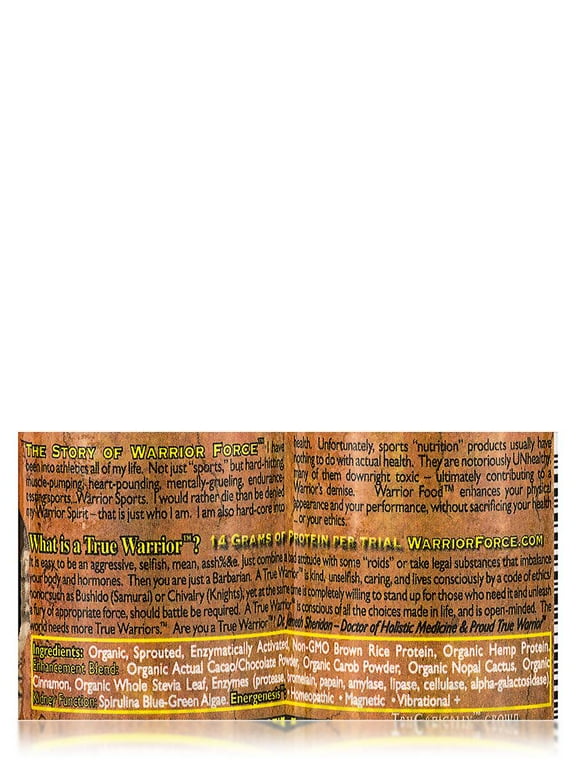 The Story of Warrior Force™ I have
been into athletics all of my life. Not just “sports,” but hard-hitting,
muscle-pumping, heart-pounding, mentally-grueling, endurance
testing sports...Warrior Sports. I would rather die than be denied
my Warrior Spirit – that is just who I am. I am also hard-core into
health. Unfortunately, sports “nutrition” products usually have
nothing to do with actual health. They are notoriously UNhealthy,
many of them downright toxic – ultimately contributing to a
Warrior's demise. Warrior Food™ enhances your physical
appearance and your performance, without sacrificing your health
... or your ethics.
What is a True Warrior™? 14 Grams of Protein per Trial WarriorForce.com
It is easy to be an aggressive, selfish, mean, assh%&e. Just combine a bad attitude with some “roids” or take legal substances that imbalance
your body and hormones. Then you are just a Barbarian. A True Warrior™ is kind, unselfish, caring, and lives consciously by a code of ethics
honor such as Bushido (Samurai) or Chivalry (Knights), yet at the same time is completely willing to stand up for those who need it and unleash
a fury of appropriate force, should battle be required. A True Warrior™ is conscious of all the choices made in life, and is open-minded. The
world needs more True Warriors.™ Are you a True Warrior™? Dr. Sheridon – Doctor of Holistic Medicine & Proud True Warrior™
Ingredients: Organic, Sprouted, Enzymatically Activated, Non-GMO Brown Rice Protein, Organic Hemp Protein,
Enhancement Blend: Organic Actual Cacao/Chocolate Powder, Organic Carob Powder, Organic Nopal Cactus, Organic
Cinnamon, Organic Whole Stevia Leaf, Enzymes (protease, bromelain, papain, amylase, lipase, cellulase, alpha-galactosidase),
Kidney Function: Spirulina Blue-Green Algae. Energenesis™: Homeopathic • Magnetic • Vibrational +
TruGanically™ grown